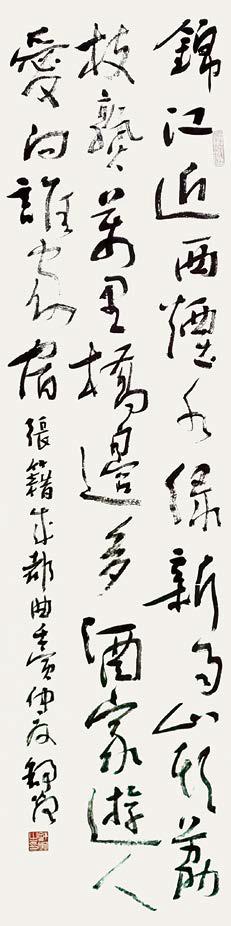 錦江近西煙水绿新雨山頭荔
枝熟萬里橋邊多酒家遊人
愛向誰家宿 張籍成都曲壬寅仲夏